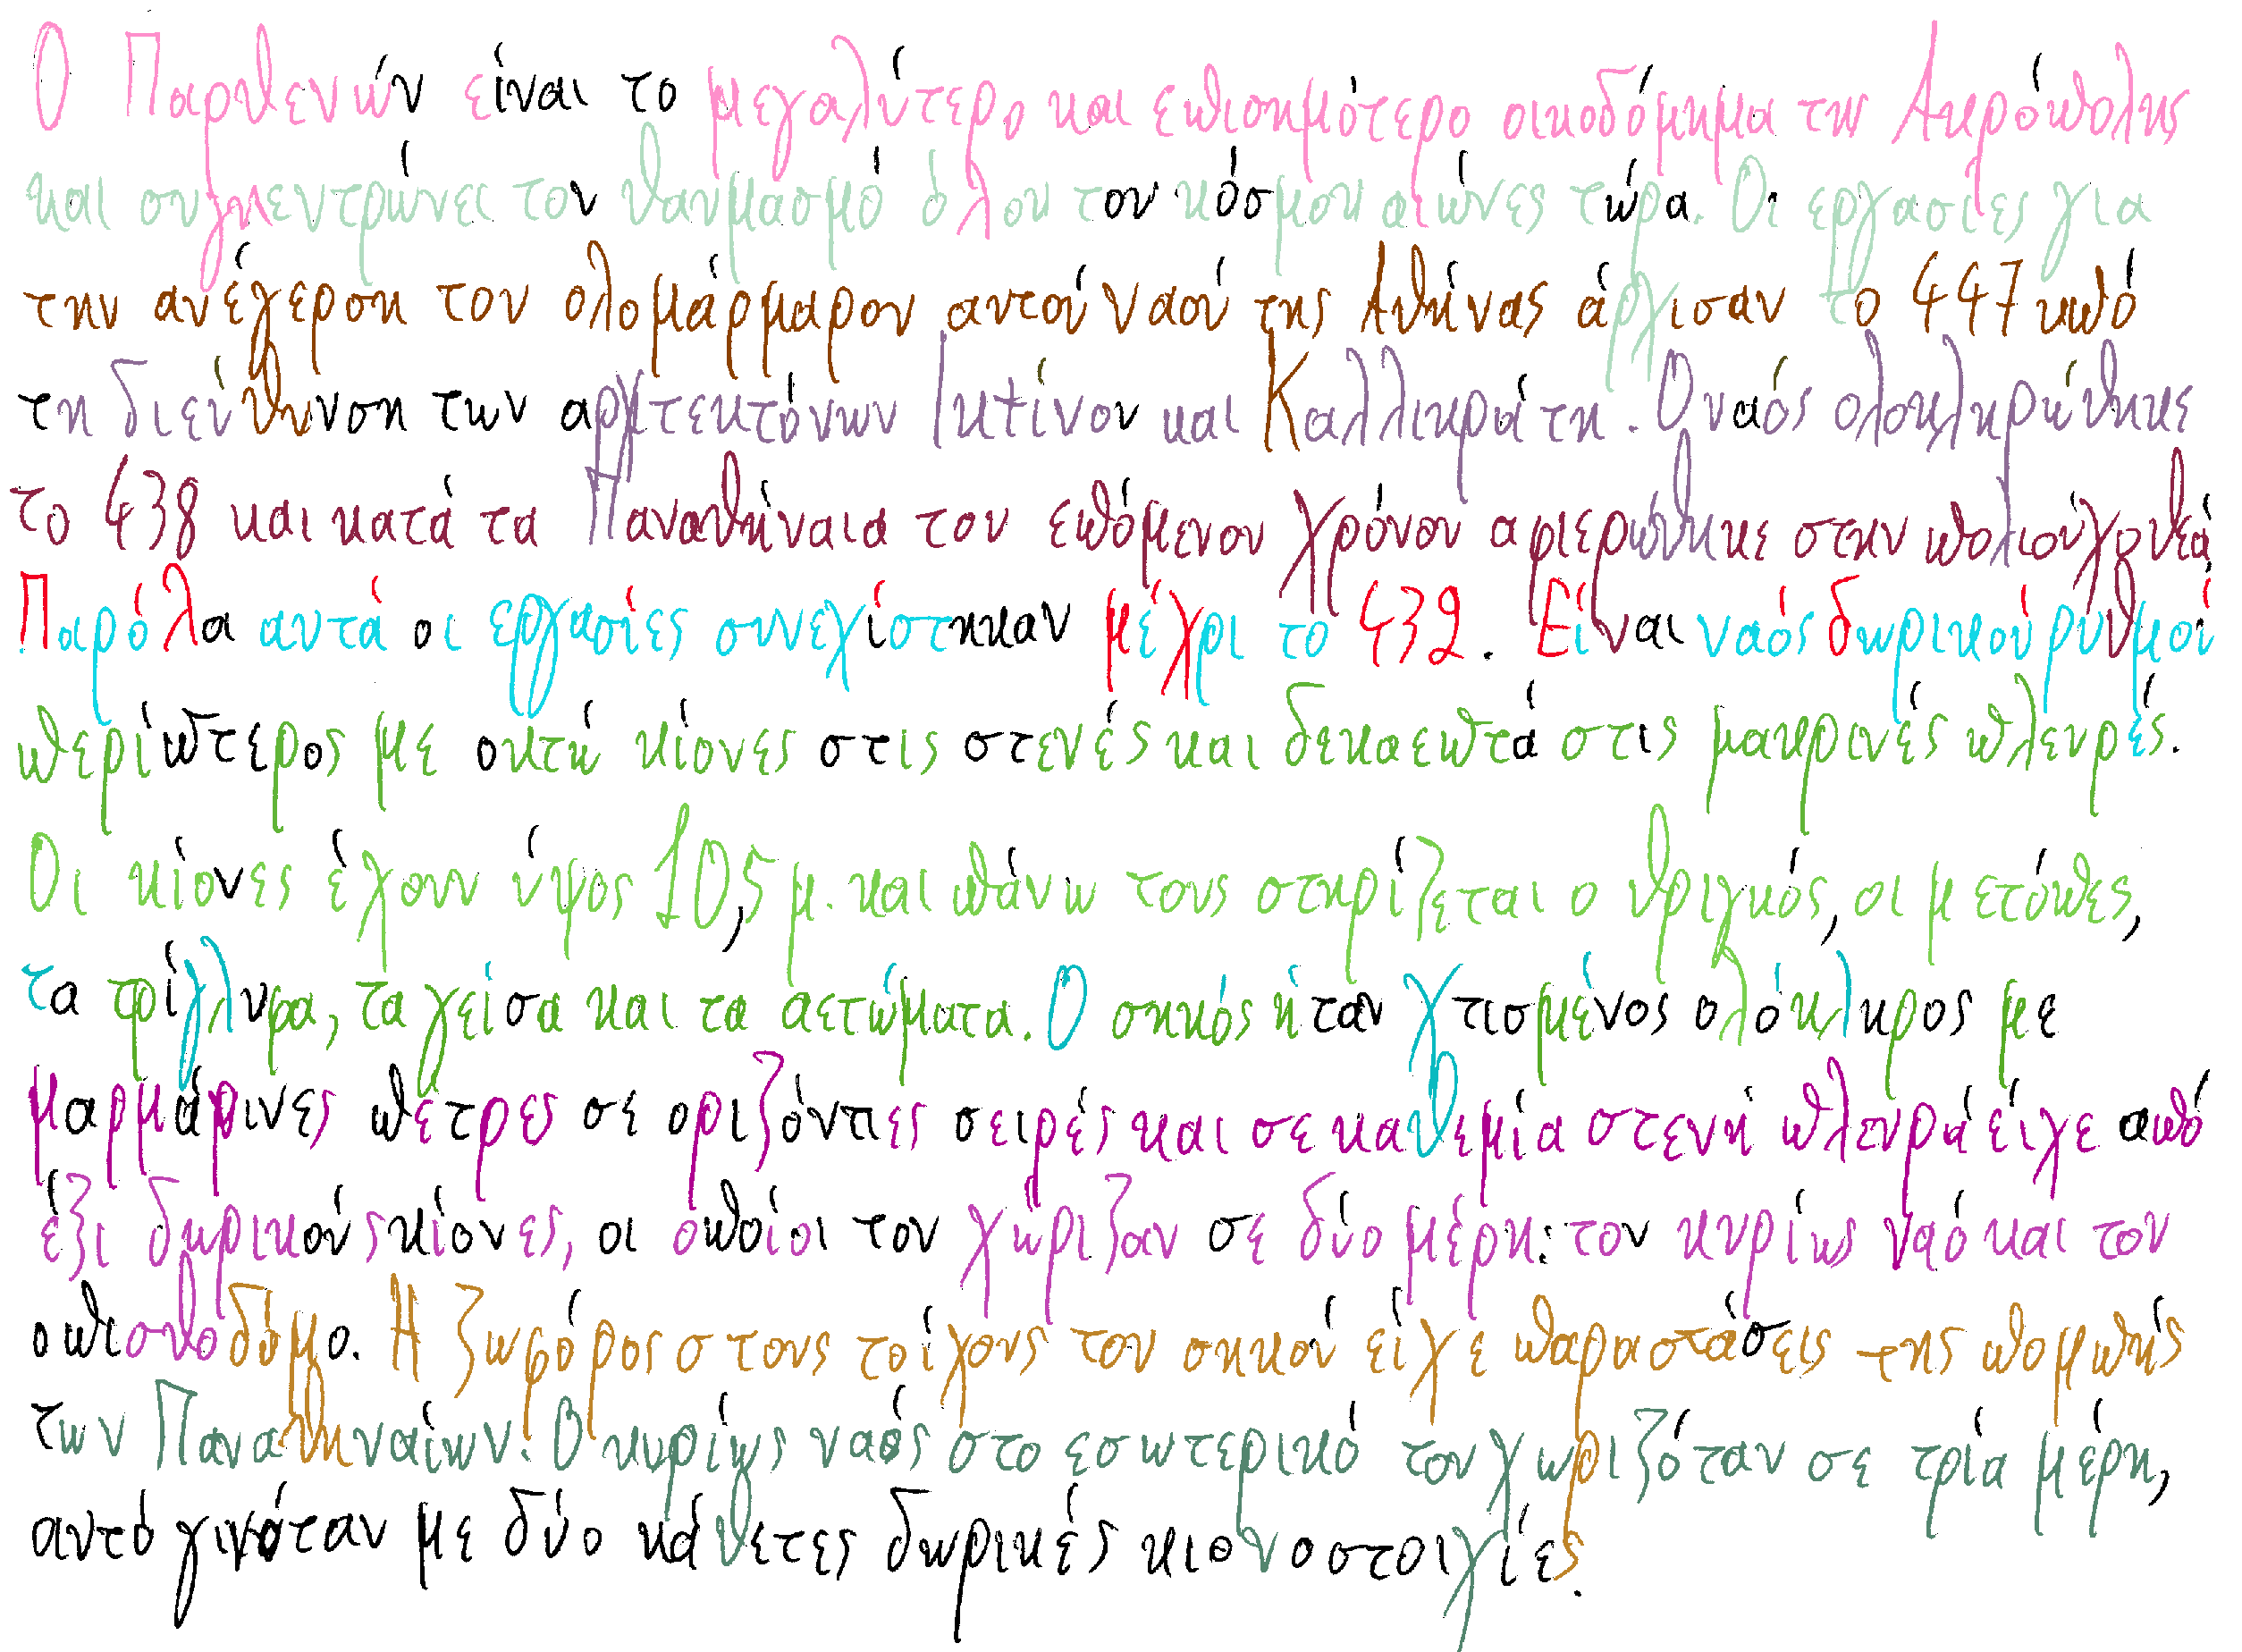 Ο Παρθενών είναι το μεγαλύτερο και επισημότερο οικοδόμημα της Ακρόπολης
και συγκεντρώνει τον θαυμασμό όλου του κόσμου αιώνες τώρα. Οι εργασίες για
την ανέγερση του ολομάρμαρου αυτού ναού της Αθήνας άρχισαν το 447 υπό
τη διεύθυνση των αρχιτεκτόνων Ικτίνου και Καλλικράτη. Ο ναός ολοκληρώθηκε
το 438 και κατά τα Παναθήναια του επόμενου χρόνου αφιερώθηκε στην πολιούχο θεά
Παρόλα αυτά οι εργασίες συνεχίστηκαν μέχρι το 432. Είναι ναός δωρικού ρυθμού
περίπτερος με οκτώ κίονες στις στενές και δεκαεπτά στις μακρινές πλευρές.
Οι κίονες έχουν ύψος 10,5 μ. και πάνω τους στηρίζεται ο θριγκός, οι μετόπες,
τα τρίγλυφα, τα γείσα και τα αετώματα. Ο σηκός ήταν χτισμένος ολόκληρος με
μαρμάρινες πέτρες σε οριζόντιες σειρές και σε καθεμία στενή πλευρά είχε από
έξι δωρικούς κίονες, οι οποίοι τον χώριζαν σε δύο μέρη: τον κυρίως ναό και τον
οπισθοδόμο. Η ζωφόρος στους τοίχους του σηκού είχε παραστάσεις της πομπής
των Παναθηναίων. Ο κυρίως ναός στο εσωτερικό του χωριζόταν σε τρία μέρη,
αυτό γινόταν με δύο κάθετες δωρικές κιονοστοιχίες.